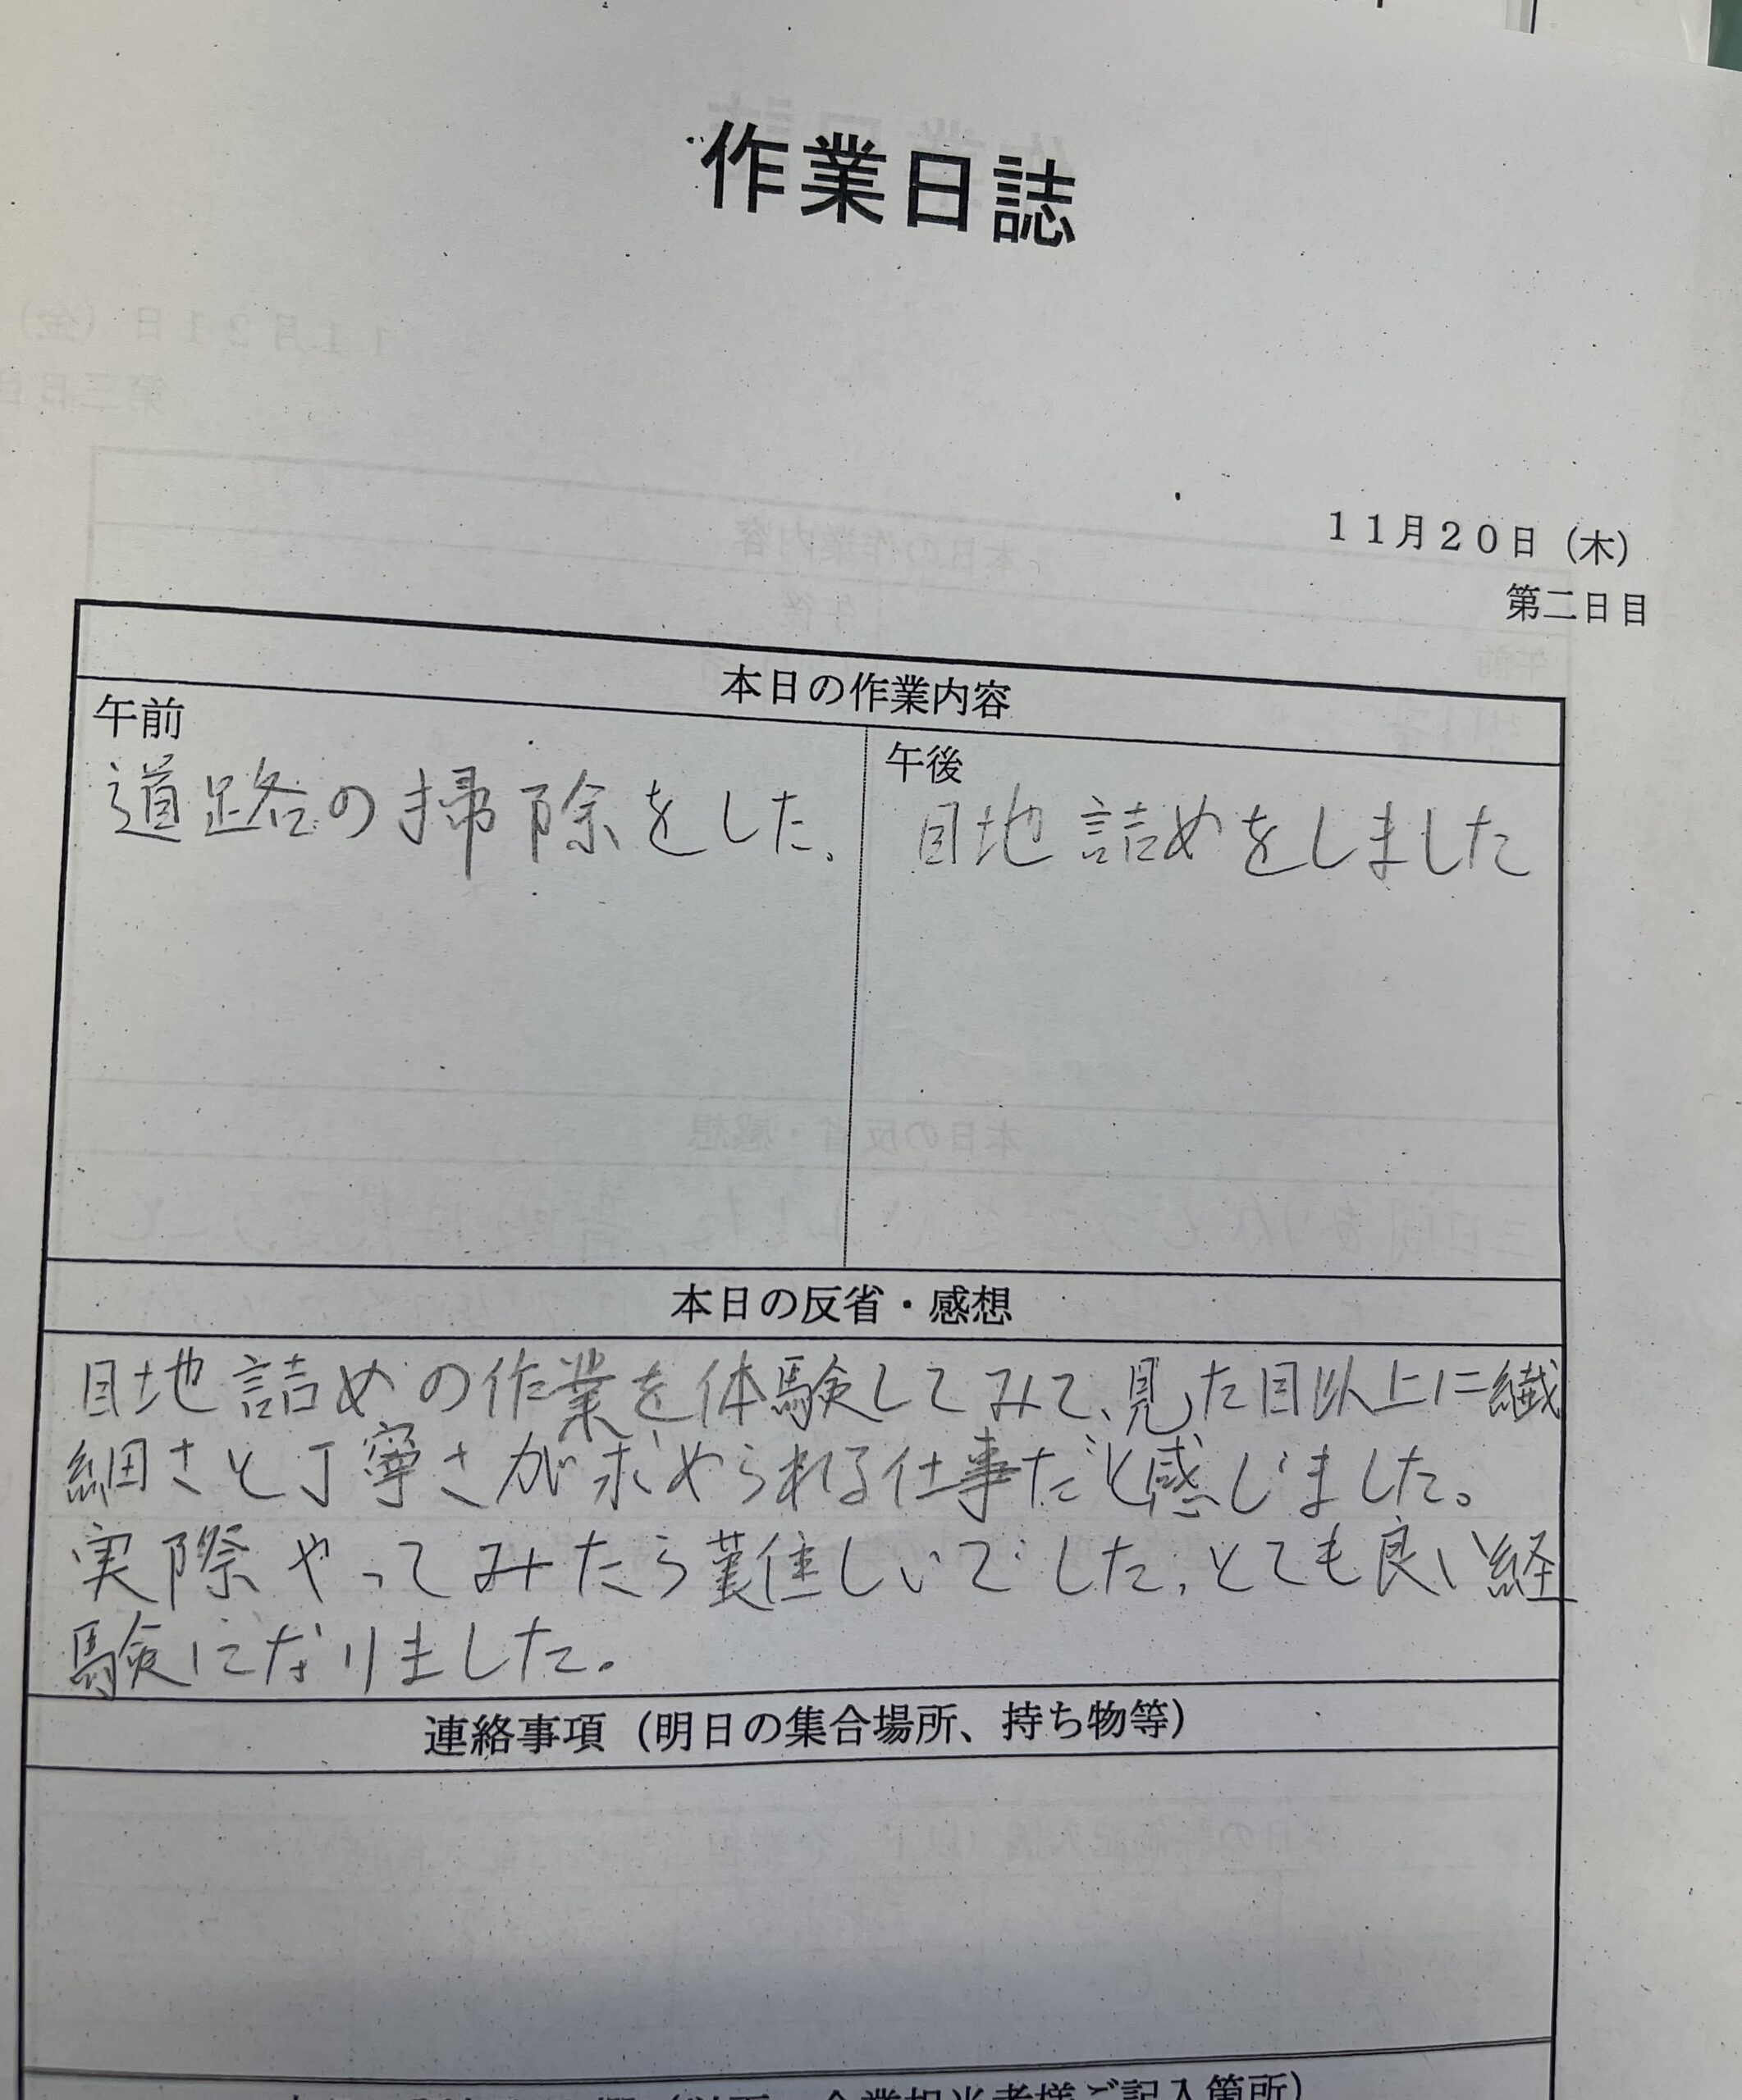 作業日誌
11月20日（木）
第二日目
本日の作業内容
午前
道路の掃除をした、
午後
目地詰めをしました
本日の反省・感想
目地詰めの作業を体験してみて、見た目以上に繊
細さと丁寧さが求められる仕事だと感じました。
実際やってみたら難しいでした、とても良い経
験になりました。
連絡事項（明日の集合場所、持ち物等）
（以下、企業担当者様ご記入箇所）